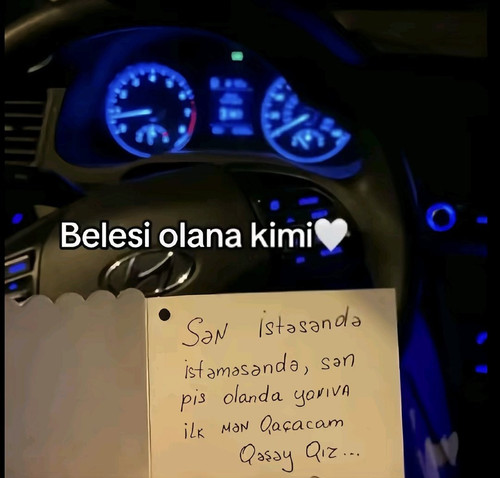 Belesi olana kimi🤍
Sən istəsəndə
istəməsəndə, sən
pis olanda yanıva
ilk mən Qaçacam
Qəşəy Qız...